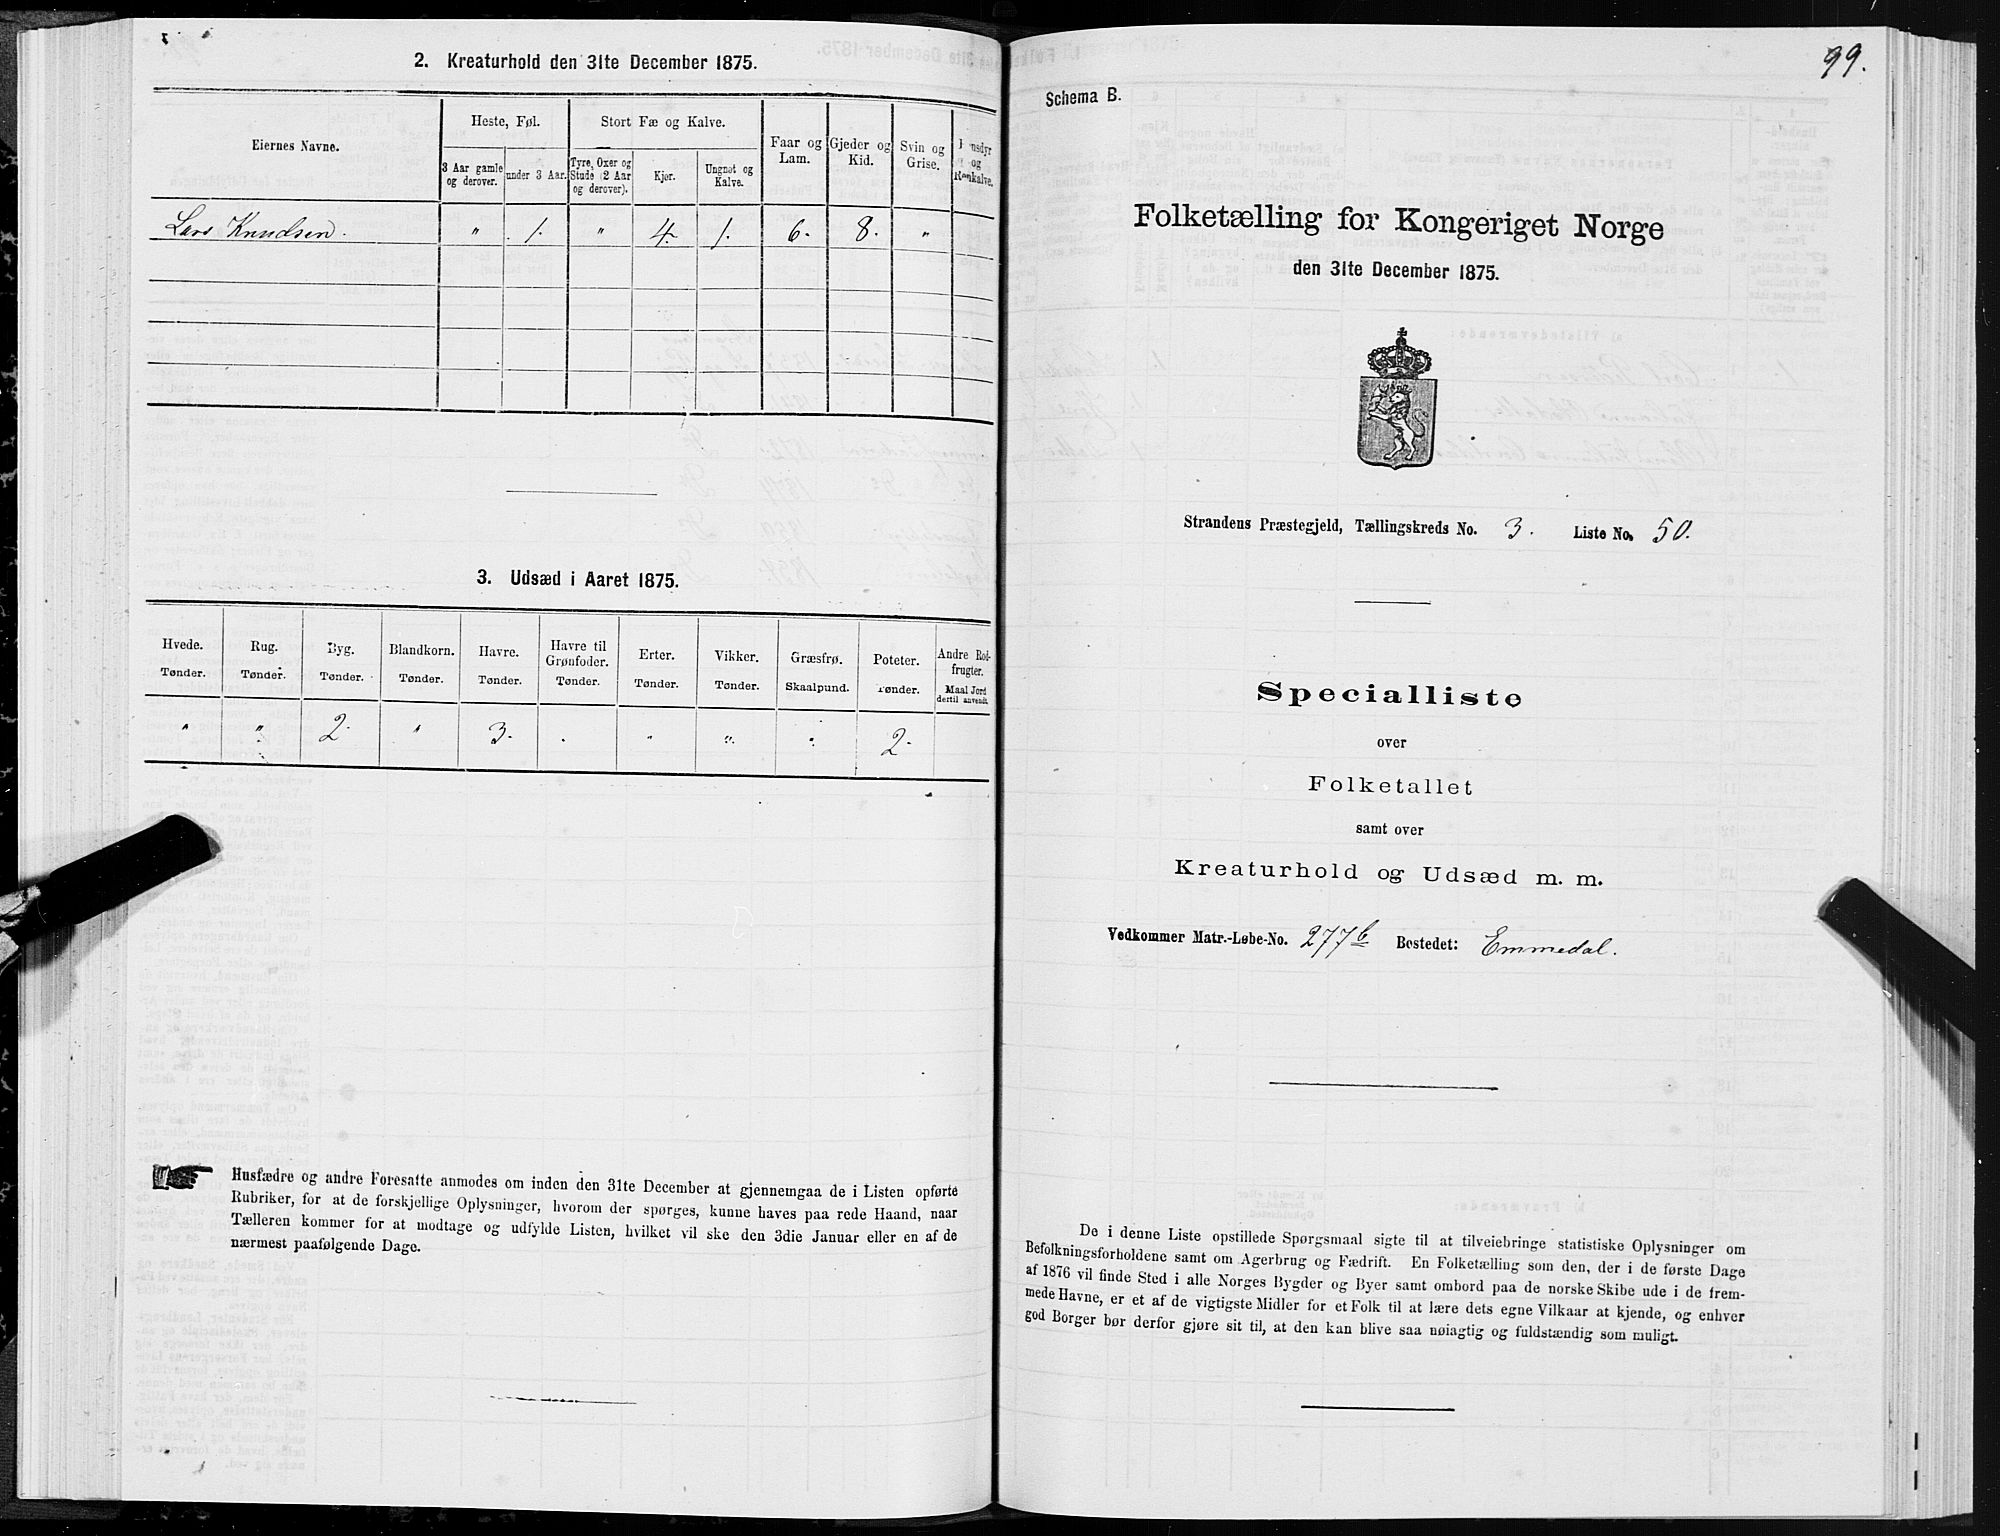 2. Kreaturhold den 31te December 1875.
Eiernes Navne.
Heste, Føl.
Stort Fæ og Kalve.
Faar og Lam.
Gjeder og Kid.
Svin og Grise.
og
3 Aar gamle og derover.
under 3 Aar.
Tyre, Oxer og Stude (2 Aar og derover).
Kjør.
Ungnøt og Kalve.
Lars Knudsen. " 1. " 4. 1. 6. 8. "
3. Udsæd i Aaret 1875.
Hvede. Rug. Byg. Blandkorn. Havre. Havre til Grønfoder. Erter. Vikker. Græsfrø. Poteter. Andre Rodfrugter.
Tønder. Tønder. Tønder. Tønder. Tønder. Tønder. Tønder. Tønder. Skaalpund. Tønder. Maal Jord dertil anvendt.
" " 2. " 3. . " " " 2.
Husfædre og andre Foresatte anmodes om inden den 31te December at gjennemgaa de i Listen opførte
Rubriker, for at de forskjellige Oplysninger, hvorom der spørges, kunne haves paa rede Haand, naar
Tælleren kommer for at modtage og udfylde Listen, hvilket vil ske den 3die Januar eller en af de
nærmest paafølgende Dage.
99.
Schema B.
Folketælling for Kongeriget Norge
den 31te December 1875.
Strandens Præstegjeld, Tællingskreds No. 3. Liste No. 50.
Specialliste
over
Folketallet
samt over
Kreaturhold og Udsæd m. m.
Vedkommer Matr.-Løbe-No. 277b Bostedet: Emmedal.
De i denne Liste opstillede Spørgsmaal sigte til at tilveiebringe statistiske Oplysninger om
Befolkningsforholdene samt om Agerbrug og Fædrift. En Folketælling som den, der i de første Dage
af 1876 vil finde Sted i alle Norges Bygder og Byer samt ombord paa de norske Skibe ude i de frem-
mede Havne, er et af de vigtigste Midler for et Folk til at lære dets egne Vilkaar at kjende, og enhver
god Borger bør derfor gjøre sit til, at den kan blive saa nøiagtig og fuldstændig som muligt.